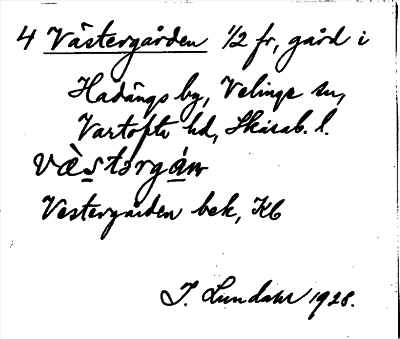 4 Västergården 1/2 fr, gård i
Hadängs by, Velinge sn,
Vartofta hd, Skarab. l.
væ̀stərgán
Vestergården bek, Kb
I. Lundahl 1928.